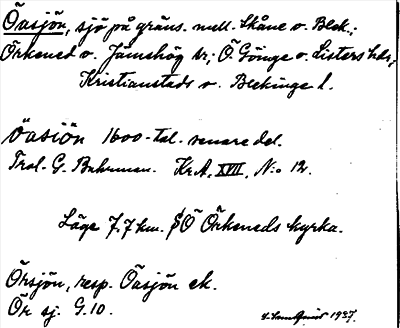 Öasjön, sjö på gräns. mell. Skåne o. Blek.;
Örkened o. Jämshög sn; Ö. Göinge o. Listers hdr;
Kristianstads o. Blekinge l.
Öasiön 1600-tal. senare del.
Trol. G. Buhrman. Kr.A. XVII, N:o 12.
Läge 7,7 km. SÖ Örkeneds kyrka.
Örsjön, resp. Öasjön ek.
Ör sj. G.10.
1937.